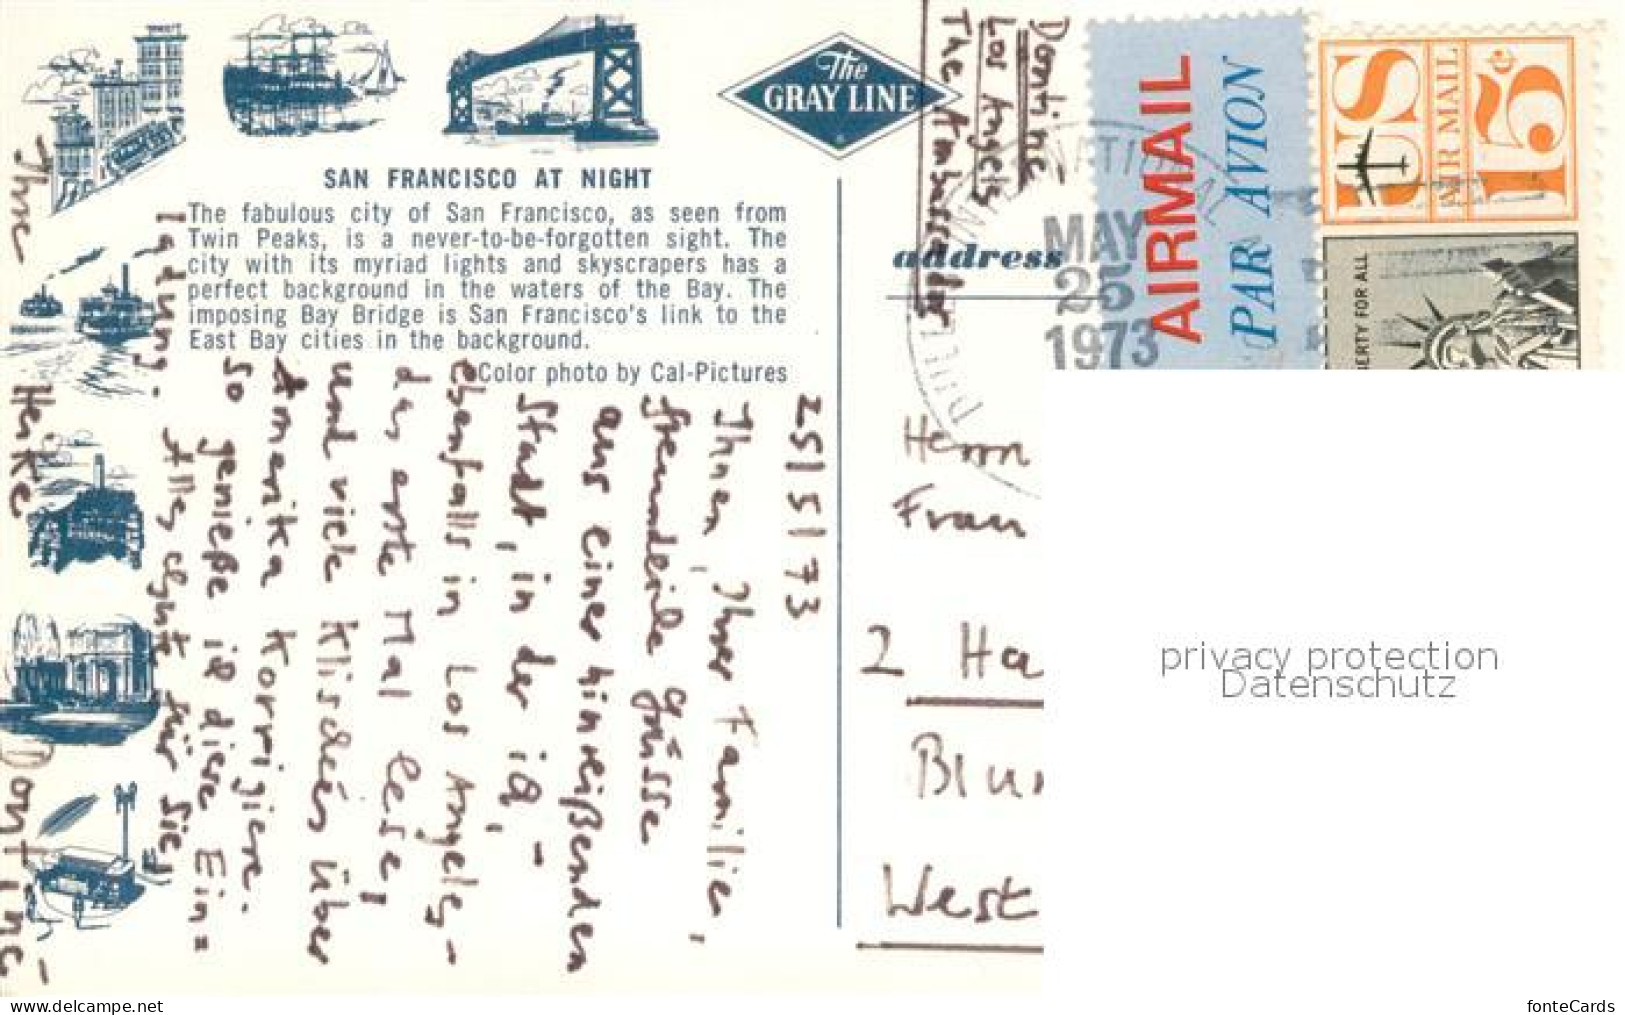 The
GRAY LINE
SAN FRANCISCO AT NIGHT
The fabulous city of San Francisco, as seen from
Twin Peaks, is a never-to-be-forgotten sight. The
city with its myriad lights and skyscrapers has a
perfect background in the waters of the Bay. The
imposing Bay Bridge is San Francisco's link to the
East Bay cities in the background.
Color photo by Cal-Pictures
25/5/73
Ihnen, Ihrer Familie,
freundliche Grüsse
aus einer hinreißenden
Stadt, in der ich, -
ebenfalls in Los Angeles -
das erste Mal lese,
und viele Klischées über
Amerika korrigiere.
So genieße ich diese Ein=
ladung. Alles Gute für Sie,
Ihre Herke Dontine
Domin
Los Angels
The Ambassador
address
AIRMAIL
PAR AVION
US
AIR MAIL
15¢
LIBERTY FOR ALL
MAY
25
1973
Herrn
Frau
2 Ha
Blu
West
privacy protection
Datenschutz
www.delcampe.net
fonteCards